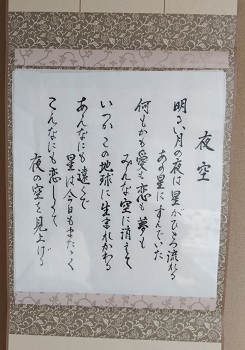 夜空
明るい月の夜は星がひとつ流れる
あの星にすんでいた
何もかも愛も恋も夢も
みんな空に消えて
いつかこの地球に生まれかわる
あんなにも遠くで
星は今日もまたたく
こんなにも恋しくて
夜の空を見上げる